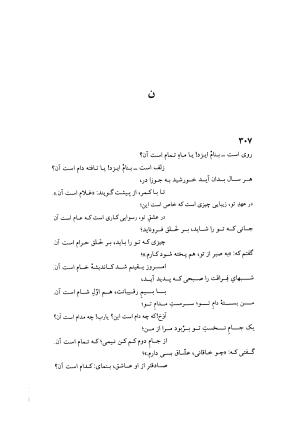 ن
۳۰۷
روی است ــ بنامْ ایزد! یا ماهِ تمام است آن؟
زلف است ــ بنامْ ایزد! یا تافته دام است آن؟
هر سال بدان آید خورشید به جوزا در،
تا با کمر، از پیشت گویند: «غلام است آن».
در عهدِ تو، زیبایی چیزی است که خاص است این؛
در عشقِ تو، رسوایی کاری است که عام است آن
جانی که تو را شاید، بر خَلق فروناید؛
چیزی که تو را باید، بر خَلق حرام است آن
گفتم که: «به صبر از تو، هم پخته شود کارم.»
امروز یقینم شد کاندیشهٔ خام است آن.
شبهای فراقت را صبحی که پدید آید،
با بیمِ رقیبانت، هم اوّلِ شام است آن.
من بستهٔ دامِ تو؛ سرمستِ مدامِ تو؛
آوخ! که چه دام است این؟ یارب! چه مدام است آن؟
یک جامِ نخستِ تو بربود مرا از من؛
از جامِ دوم کم کن نیمی؛ که تمام است آن.
گفتی که: «چو خاقانی، عشّاق بسی دارم.»؛
صادقتر از او عاشق، بنمای: کدام است آن؟